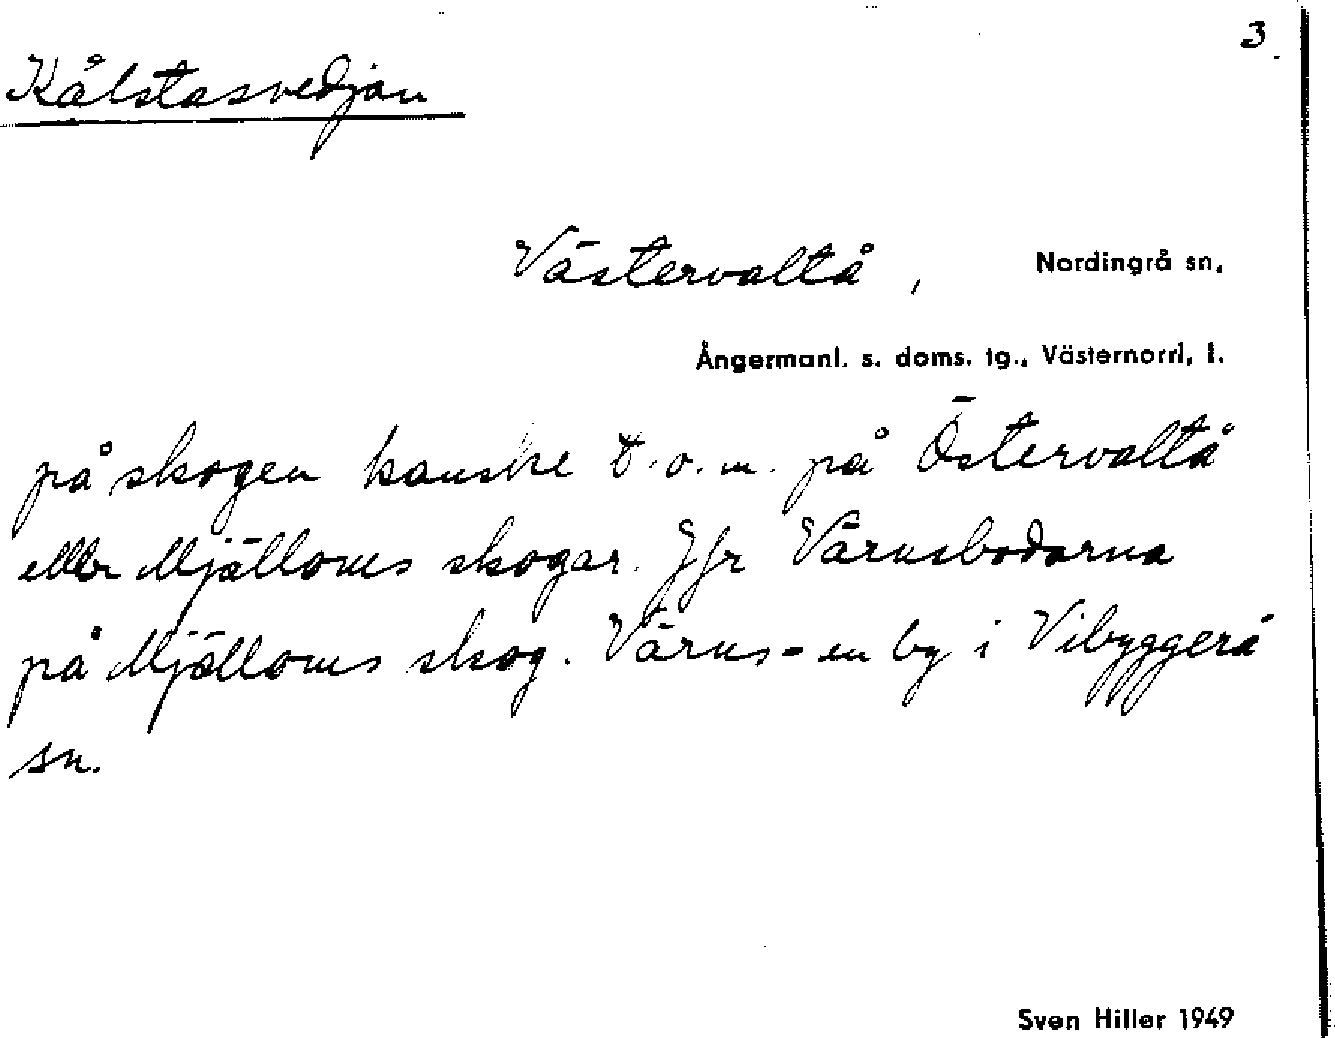 3
Kålstasvedjan
Västervaltå, Nordingrå sn,
Ångermanl. s. doms. tg., Västernorrl, l.
på skogen kanske t.o.m. på Östervaltå
eller Mjälloms skogar. Jfr Värnsbodarna
på Mjälloms skog. Värns - en by i Vibyggerå
sn.
Sven Hiller 1949